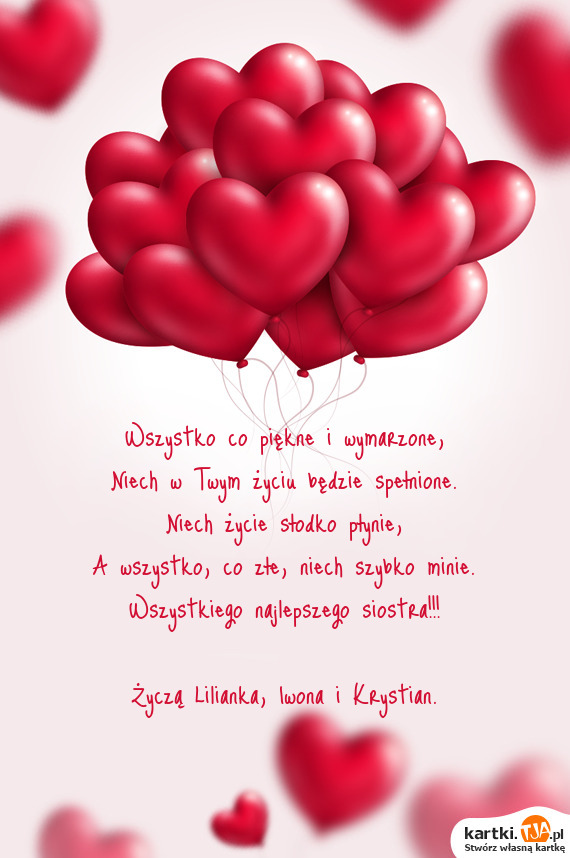 Wszystko co piękne i wymarzone,
Niech w Twym życiu będzie spełnione.
Niech życie słodko płynie,
A wszystko, co złe, niech szybko minie.
Wszystkiego najlepszego siostra!!!
Życzą Lilianka, Iwona i Krystian.
kartki.TJA.pl
Stwórz własną kartkę